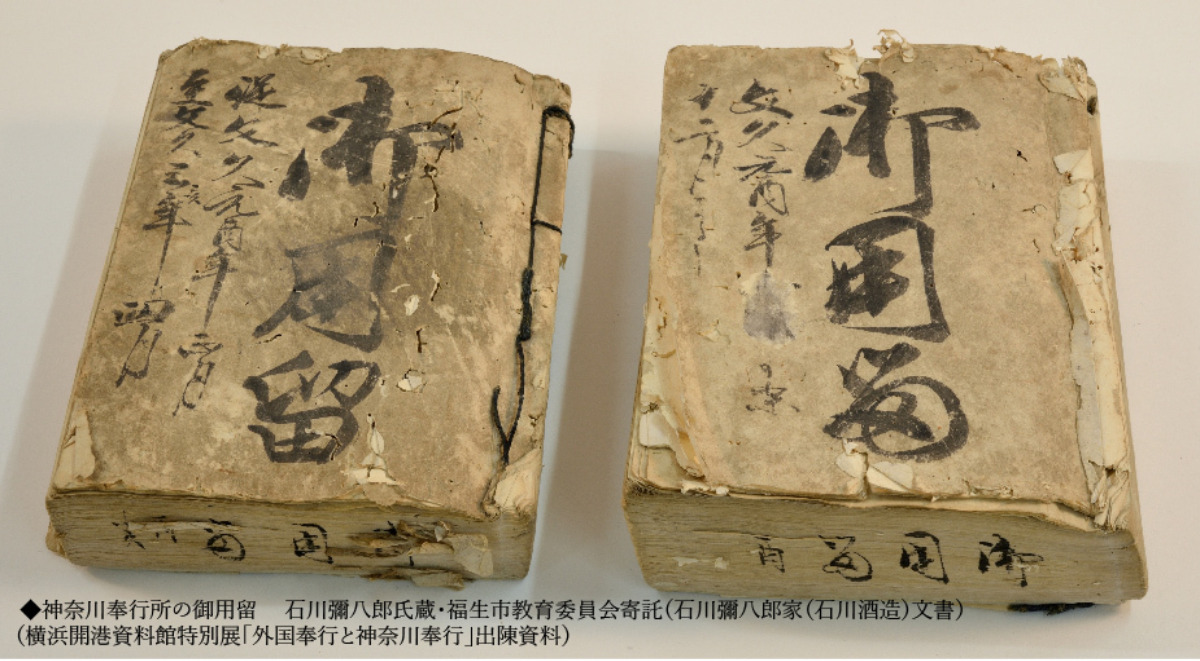 御用留
従文久元酉年
正月
至文久三亥年
四月
御用留
文久元酉年
十二月ゟ
御用留
御用留
酉
◆神奈川奉行所の御用留　石川彌八郎氏蔵・福生市教育委員会寄託（石川彌八郎家（石川酒造）文書）
（横浜開港資料館特別展「外国奉行と神奈川奉行」出陳資料）